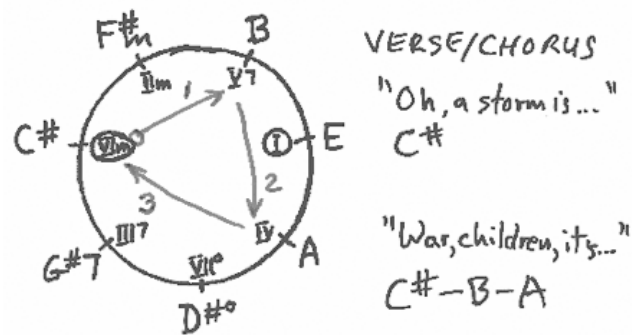 F#m
B
IIm
1
V7
C#
VIm
I
E
2
3
IV
A
III7
G#7
VII°
D#°
VERSE/CHORUS
"Oh, a storm is..."
C#
"War, children, it's..."
C#-B-A